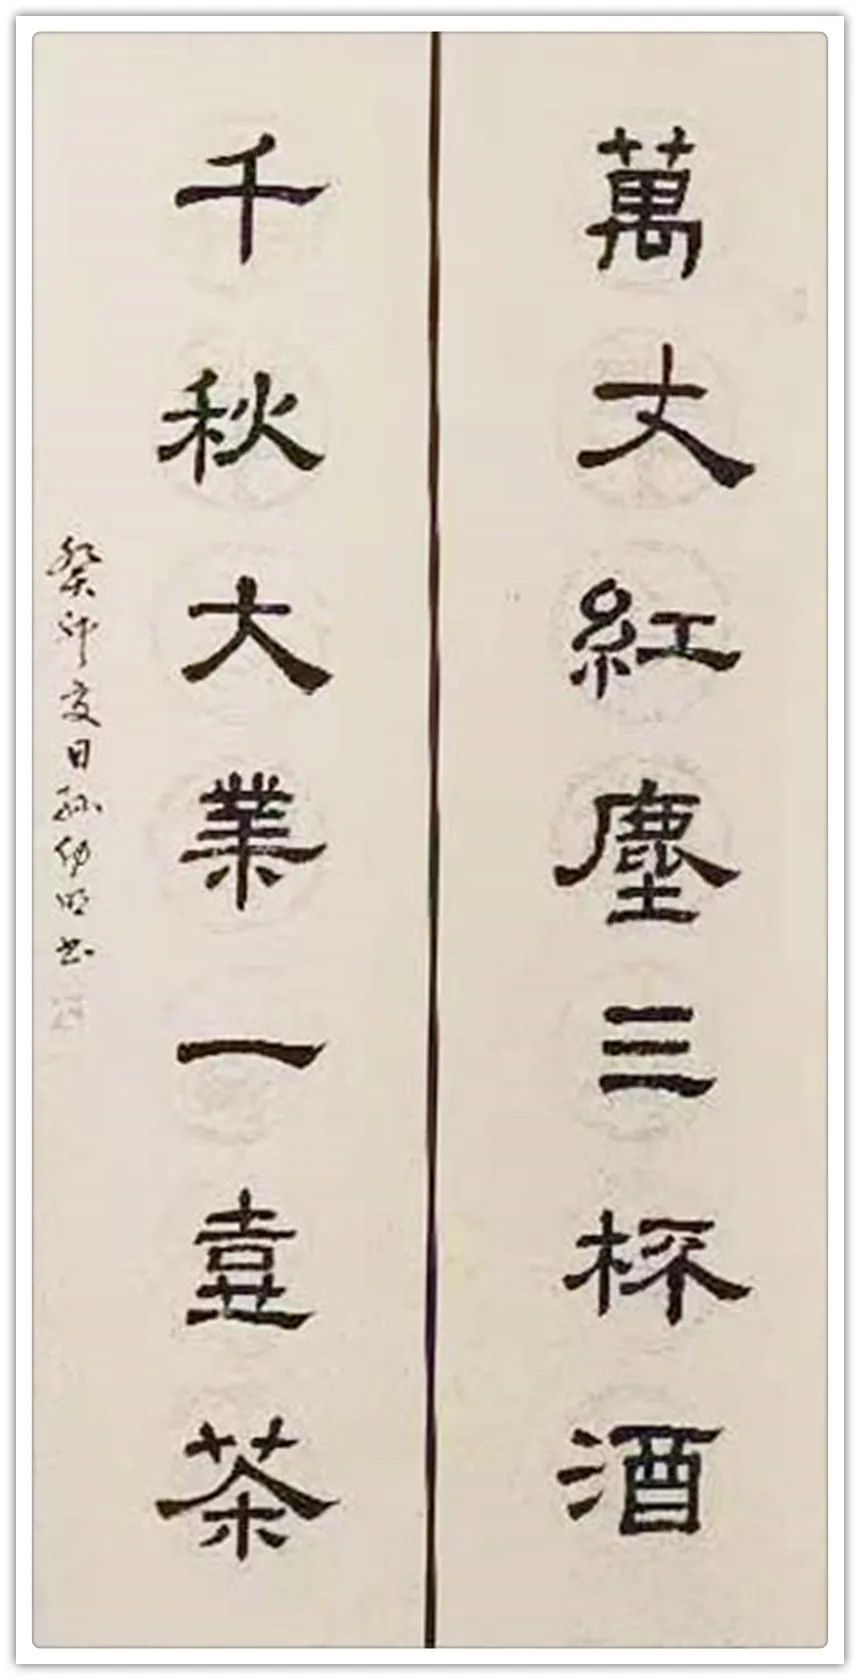 萬丈紅塵三杯酒
千秋大業一壺茶
癸卯夏日孫幼明書